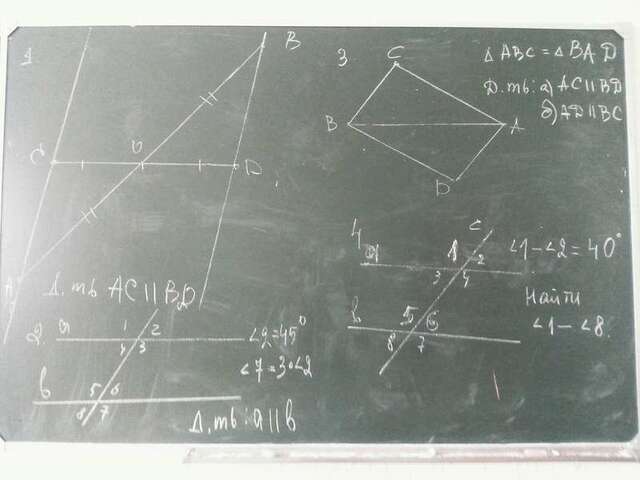 1
B
C
O
D
A
Д.ть AC || BD
2.
a
1 2
4 3
b
5 6
8 7
∠2=45°
∠7=3∘∠2
Д.ть: a || b
3.
C
B
A
D
Δ ABC = Δ BAD
Д.ть: а) AC || BD
б) AD || BC
4
a
c
1 2
3 4
b
5 6
8 7
∠1-∠2=40°
Найти
∠1-∠8.